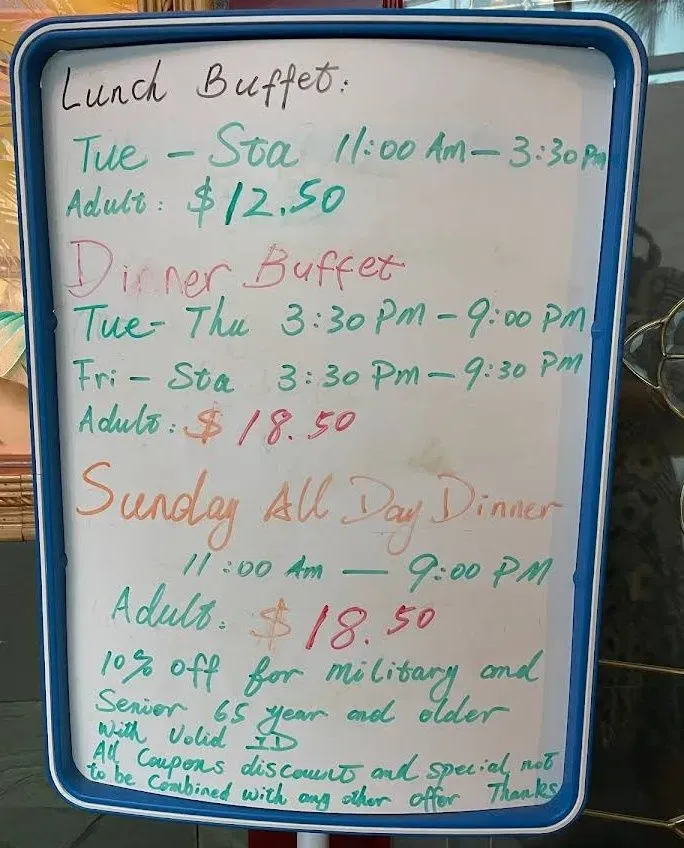 Lunch Buffet:
Tue - Sta 11:00 Am - 3:30 Pm
Adult: $12.50
Dinner Buffet
Tue- Thu 3:30 PM - 9:00 PM
Fri - Sta 3:30 Pm - 9:30 PM
Adult: $18.50
Sunday All Day Dinner
11:00 Am — 9:00 PM
Adult: $18.50
10% off for military and
Senior 65 year and older
With Valid ID
All Coupons discount and special not
to be Combined with any other offer Thanks